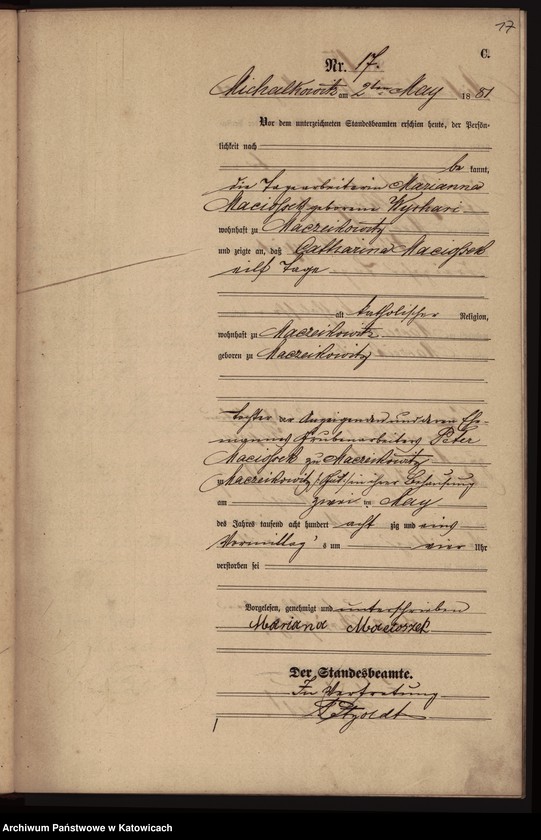 17
C.
Nr. 17.
Michalkowitz am 2ten May 1881
Vor dem unterzeichneten Standesbeamten erschien heute, der Persön-
lichkeit nach
be kannt,
die Tagearbeiterin Marianna
Maciossek geborene
wohnhaft zu Maczeikowitz
und zeigte an, daß Catharina Maciossek
eilf Tage
alt katholischer Religion,
wohnhaft zu Maczeikowitz
geboren zu Maczeikowitz
Tochter der Anzeigenden und deren Ehe-
mannes Grubenarbeiters Peter
Maciossek zu Maczeikowitz
zu Maczeikowitz /:Gut:/ in ihrer Behausung
am zwei ten May
des Jahres tausend acht hundert acht zig und eins
Vormittag s um vier Uhr
verstorben sei
Vorgelesen, genehmigt und unterschrieben
Mariana Macioszek
Der Standesbeamte.
In Vertretung
Archiwum Państwowe w Katowicach